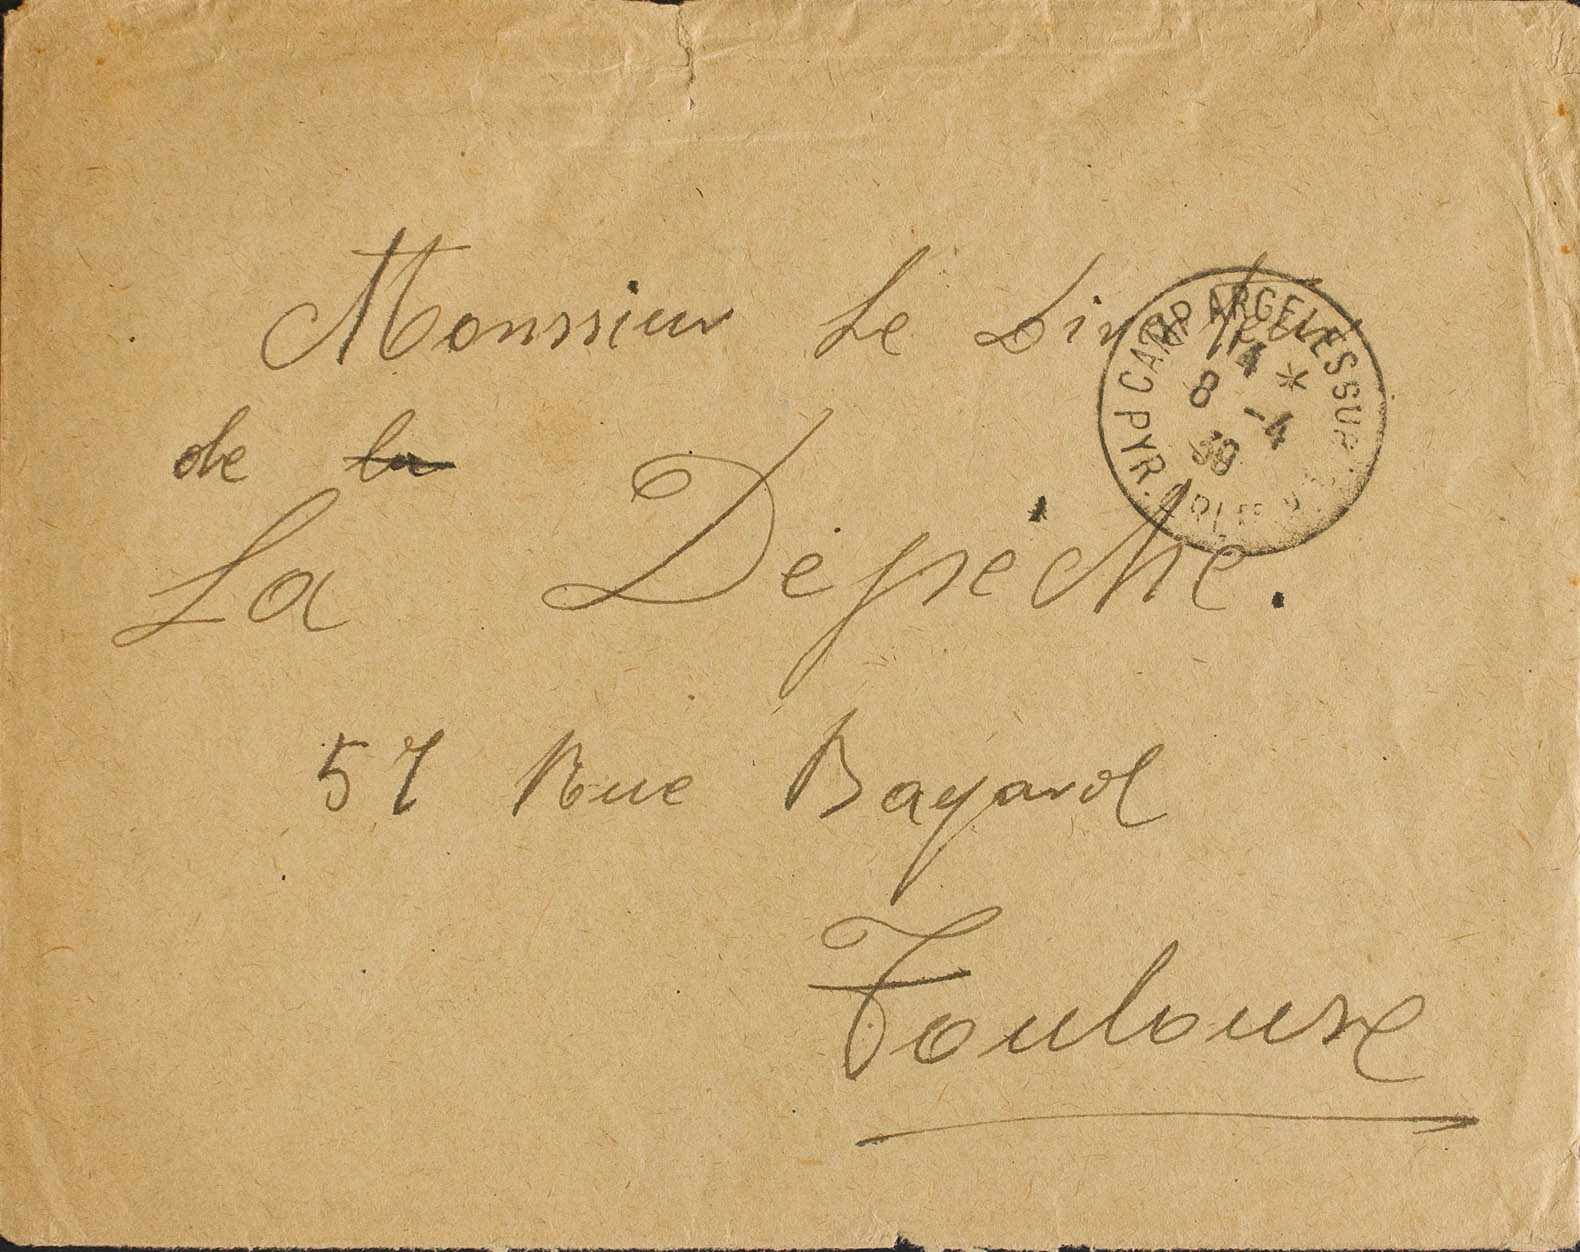 Monsieur Le Directeur
de la
La Dépêche.
57 Rue Bayard
Toulouse
CAMP ARGELES SUR
PYR. ORLES
14 *
8 -4
39